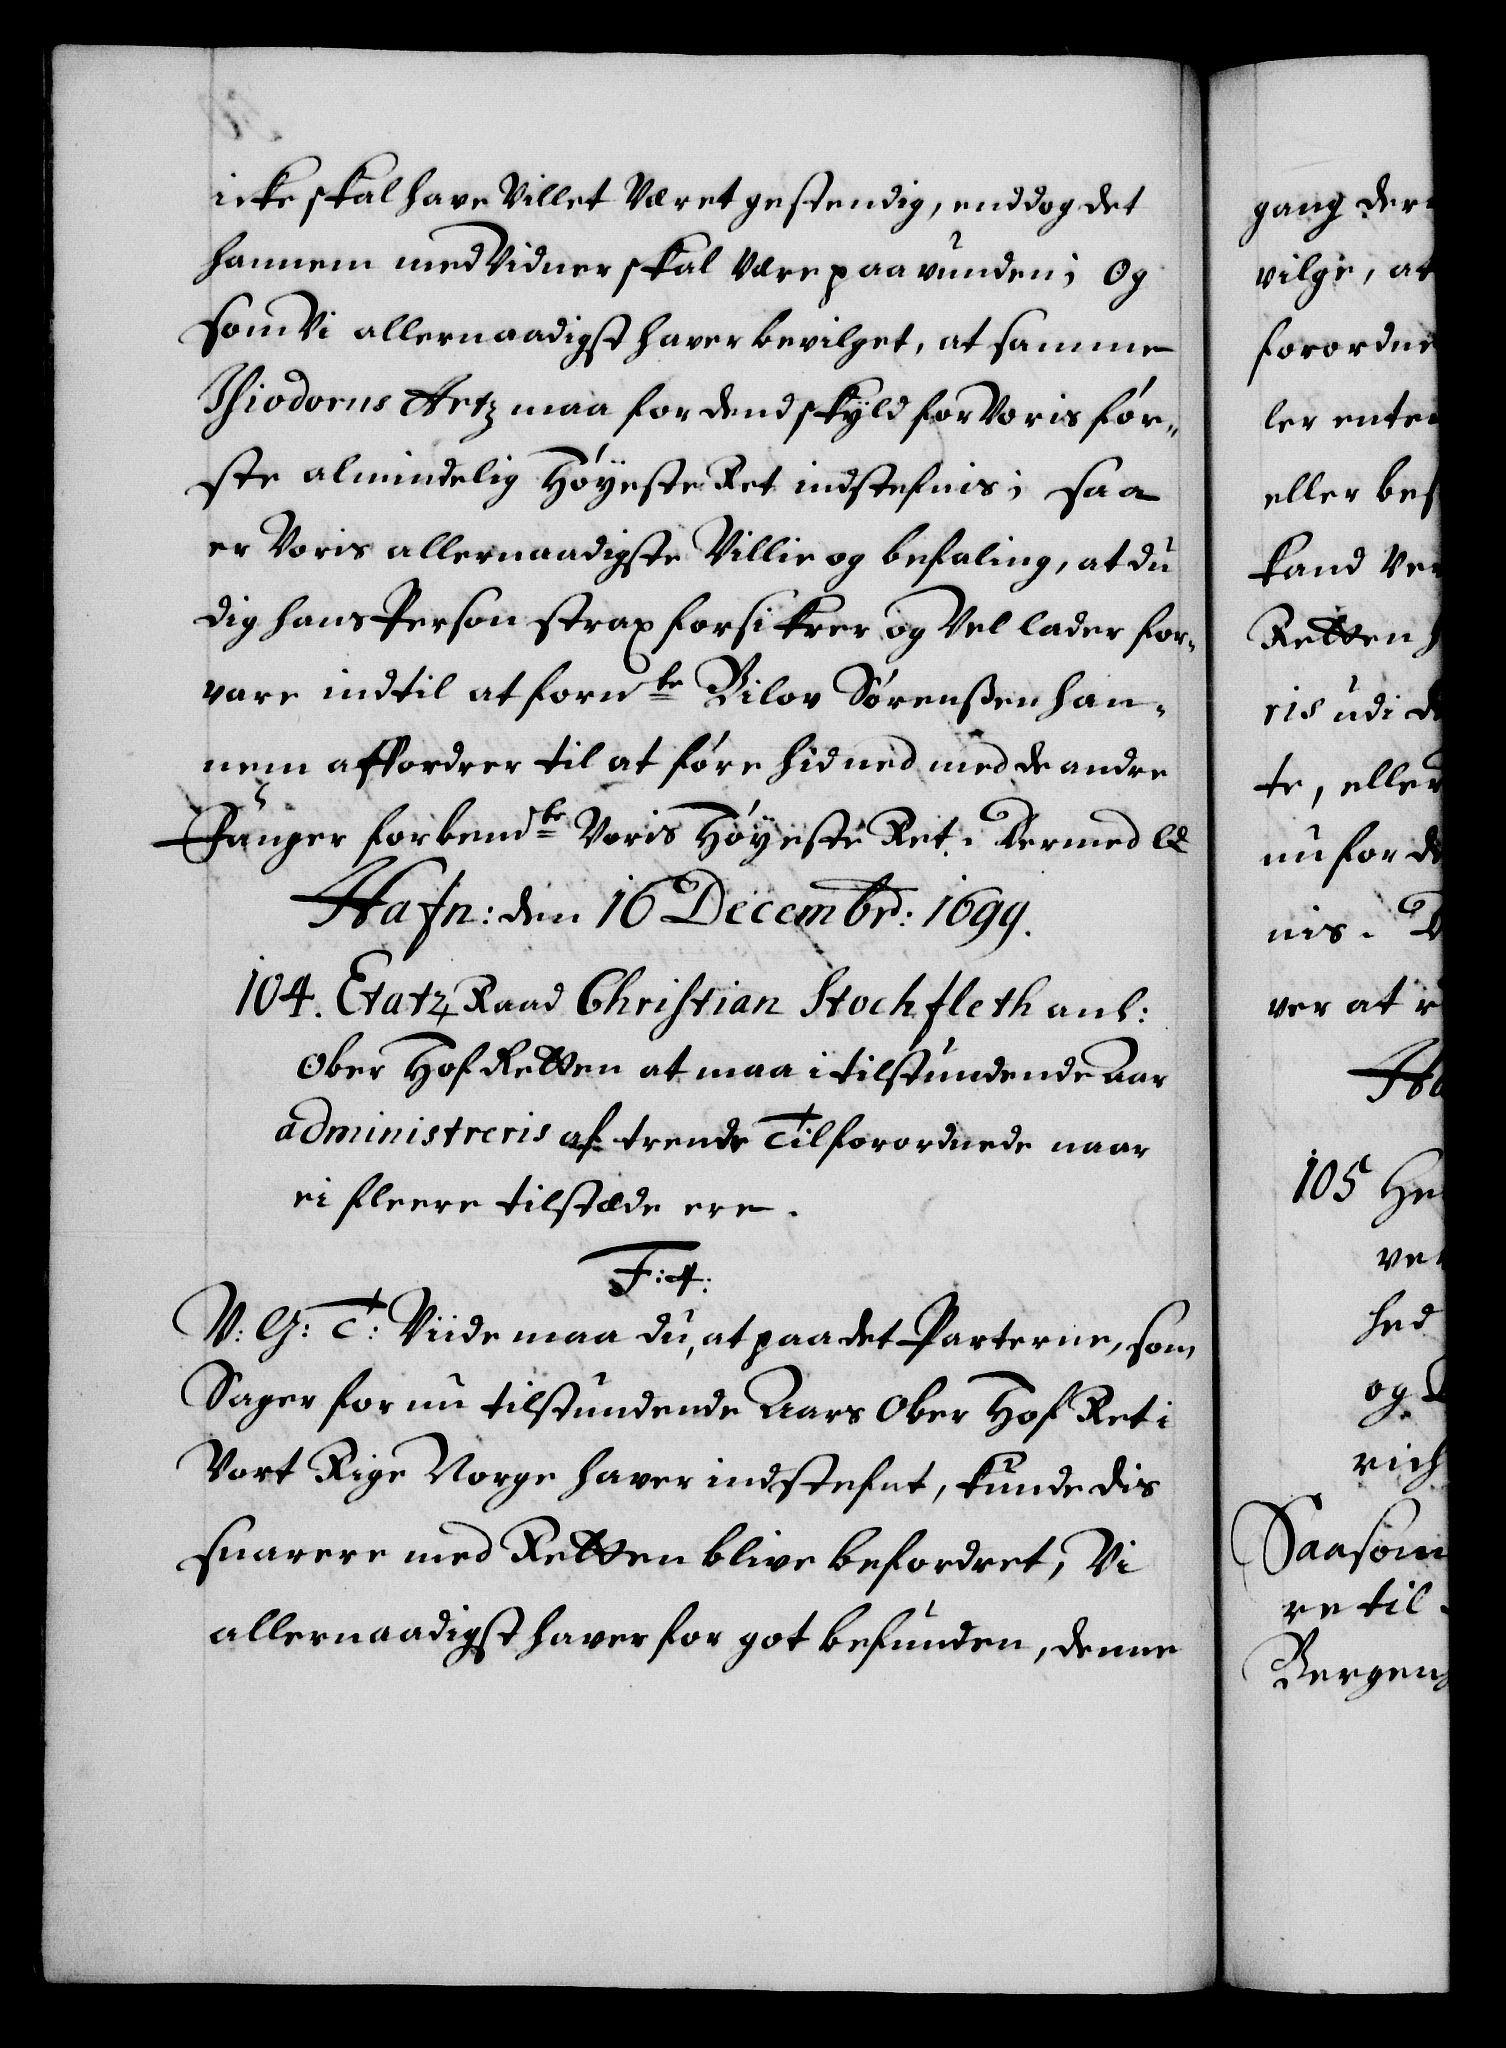 icke skal have Villet Været gestendig, enddog det
hannem med Vidner skal Være paavunden; Og
som Vi allernaadigst haver bevilget, at samme
Isiodorus Artz maa for dend skyld for Voris før-
ste almindelig Høyeste Ret indstefnis; saa
er Voris allernaadigste Villie og befaling, at du
dig hans Person strax forsikrer og Vel lader for-
vare indtil at fornbte Bilov Sørenßen han-
nem affordrer til at føre hid ned med de andre
Fanger for bemdte Voris Høyeste Ret. Dermed &c
Hafn: den 16 Decembr: 1699.
104. Etatz Raad Christian Stochfleth anl:
Ober Hof Retten at maa i tilstundende Aar
administreris af trende Tilforordnede naar
ei fleere tilstæde ere.
F: 4:
V: G: T: Viide maa du, at paa det Parterne, som
Sager for nu tilstundende Aars Ober Hof Ret i
Vort Rige Norge haver indstefnt, kunde dis
snarere med Retten blive befordret, Vi
allernaadigst haver for got befunden, denne
gang der
vilge, at
forordne
ler enten
eller bef
kand Ver
Retten
ris udi d
te, eller
nu for de
nis. D
ver at
Ha
105 He
ve
hed
og
rich
Saasom
re til
Bergens